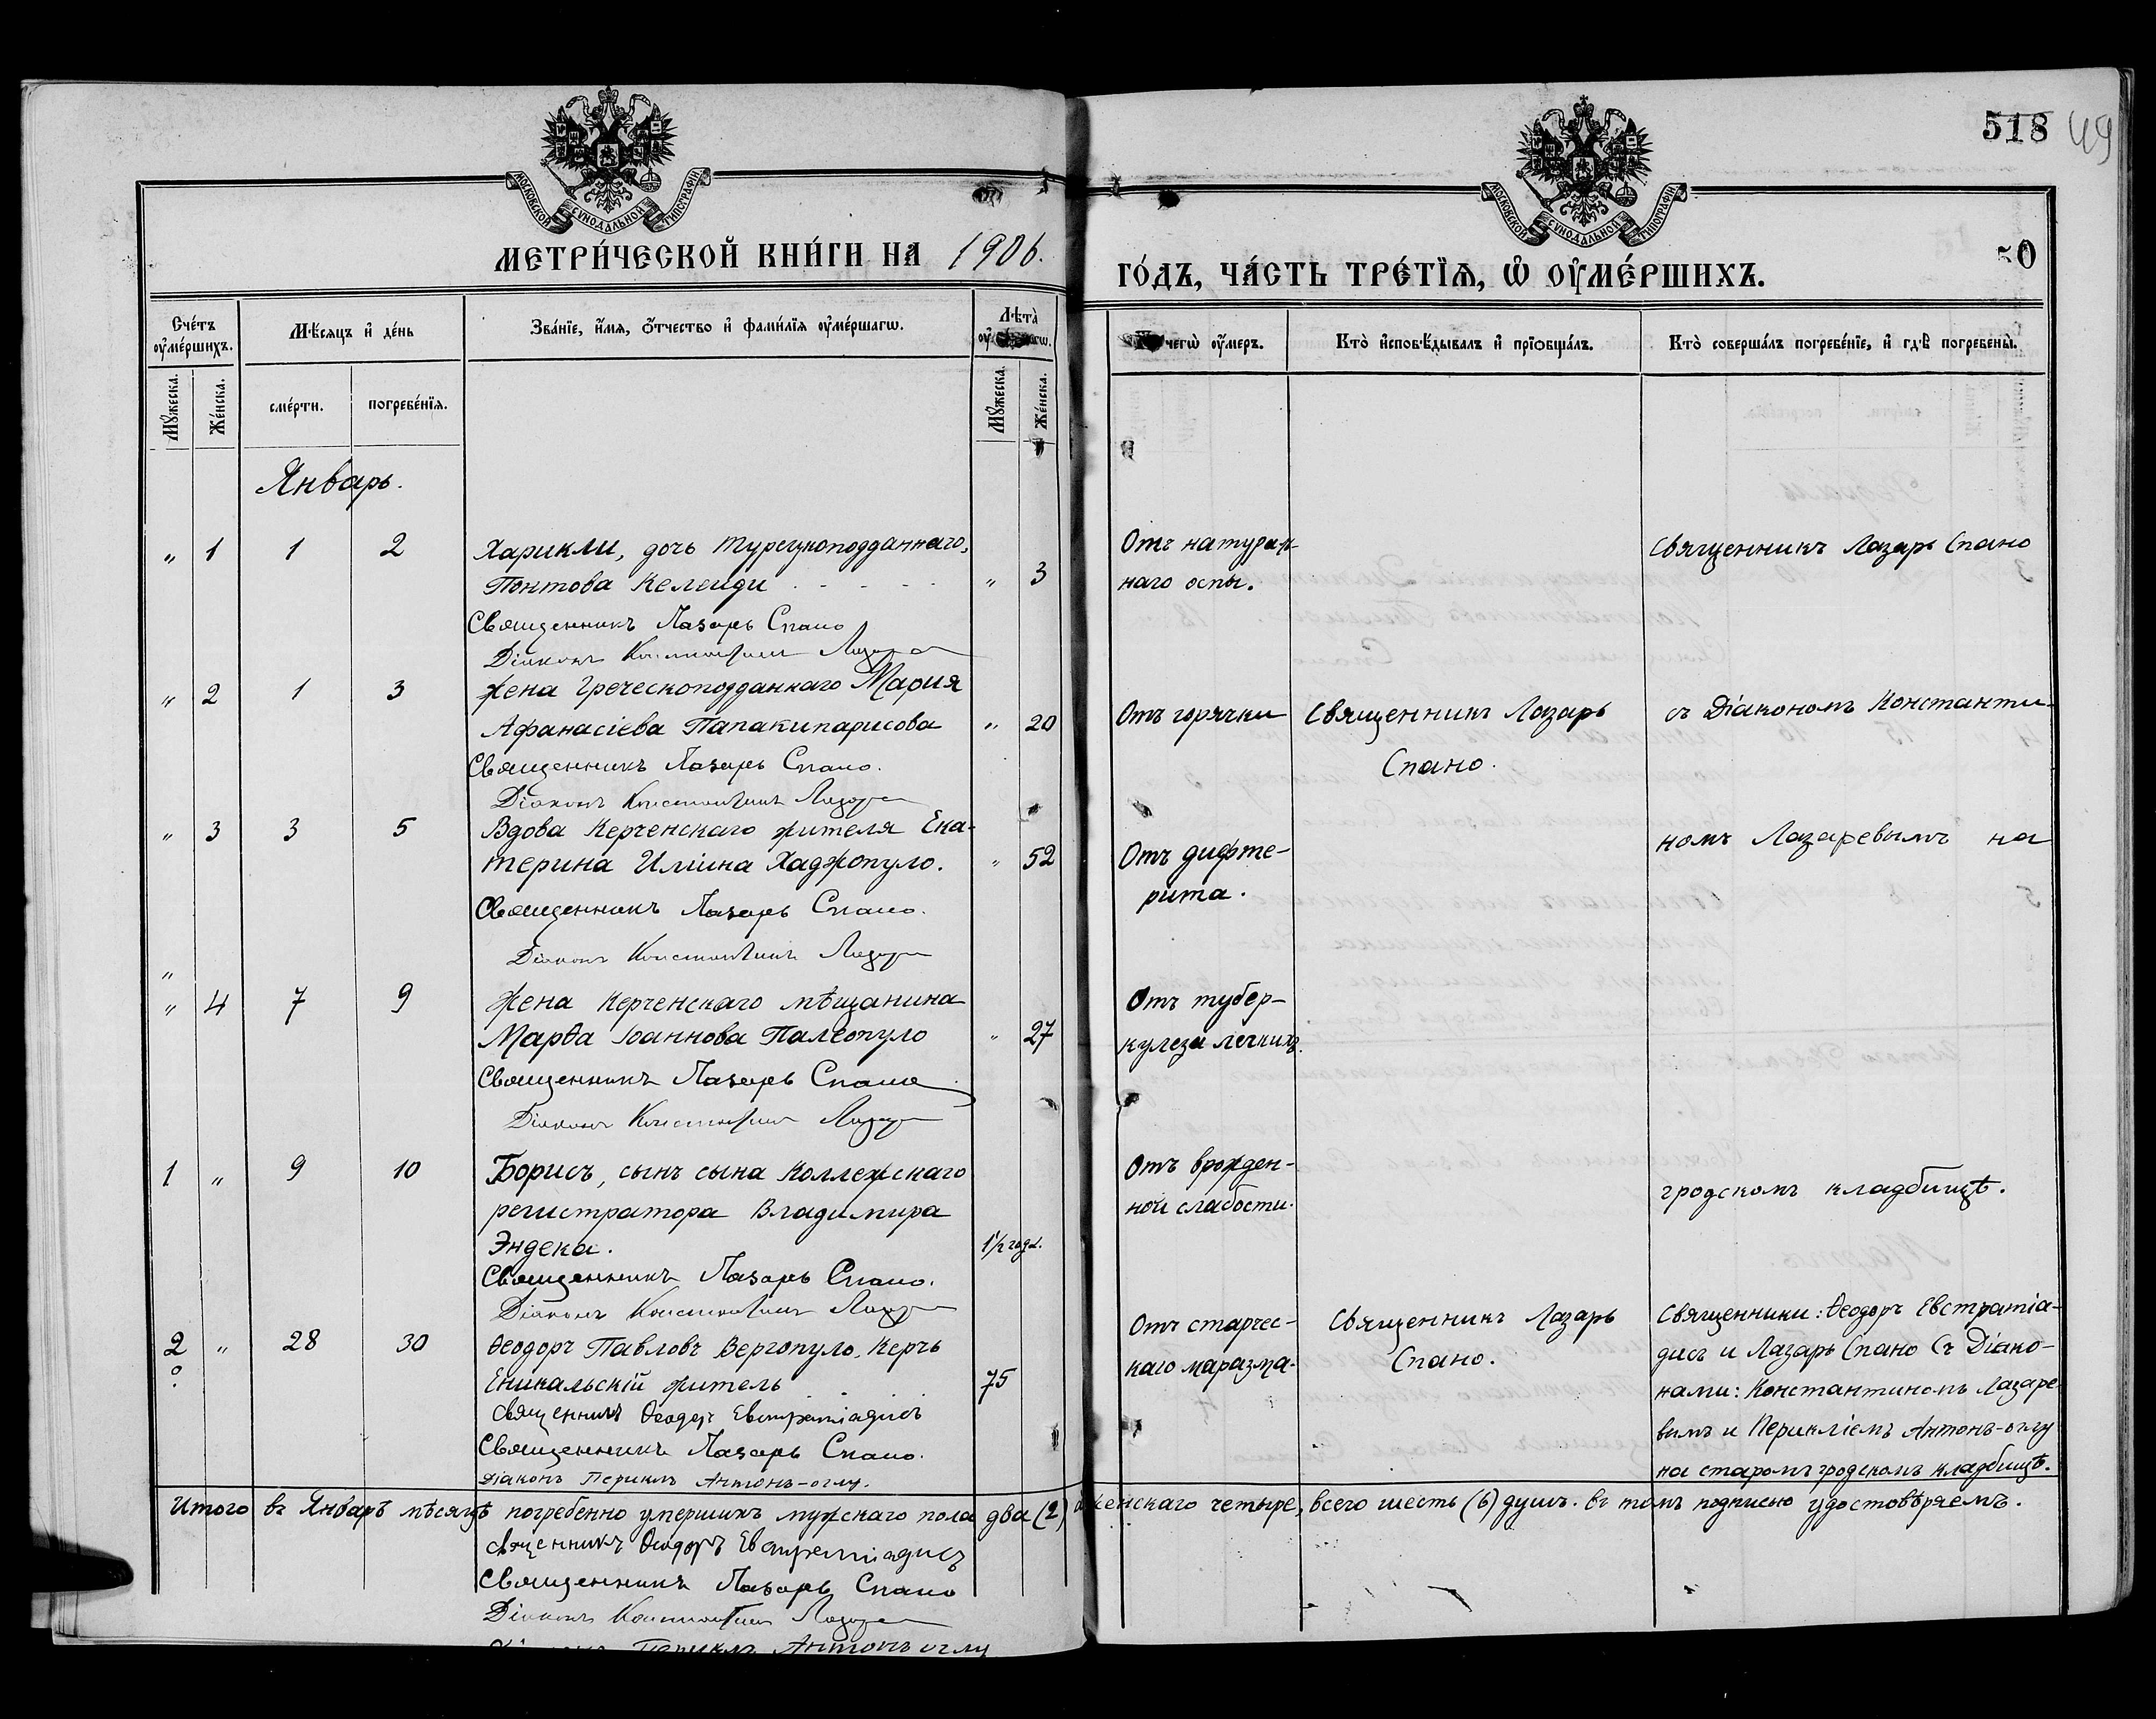 518 49
МОСКОВСКОЙ СУНОДАЛЬНОЙ ТИПОГРАФІИ
МОСКОВСКОЙ СУНОДАЛЬНОЙ ТИПОГРАФІИ
МЕТРИ́ЧЕСКОЙ КНИ́ГИ НА 1906.
ГО́ДЪ, ЧА́СТЬ ТРЕ́ТЇѦ, Ѡ҆ ОУ҆МЕ́РШИХЪ.
50
Сче́тъ оу҆ме́ршихъ.
Мѣ́сяцъ и҆ де́нь
Зва́нїе, и҆́мя, ѻ҆́тчество и҆ фами́лїя оу҆ме́ршагѡ.
Лѣта̀
Му́жеска.
Же́нска.
сме́рти.
погребе́нїя.
Му́жеска.
Же́нска.
чегѡ̀ оу҆́меръ.
Кто̀ и҆сповѣ́дывалъ и҆ прїѡбща́лъ.
Кто̀ соверша́лъ погребе́нїе, и҆ гдѣ̀ погребены̀.
Январь.
" 1 1 2 Харикли, дочь турецкоподданнаго,
Понтова Келеиди " 3
Священникъ Лазарь Спано
Діаконъ Константинъ Лазарев
Отъ натураль-
наго оспы.
Священникъ Лазарь Спано
" 2 1 3 Жена Греческоподданнаго Мария
Афанасіева Папакипарисова " 20
Священникъ Лазарь Спано.
Діаконъ Константинъ Лазарев
Отъ горячки
Священникъ Лазарь
Спано.
съ Діакономъ Константи-
" 3 3 5 Вдова Керченскаго жителя Ека-
терина Иліина Хаджопуло. " 52
Священникъ Лазарь Спано.
Діаконъ Константинъ Лазарев
Отъ дифте-
рита.
номъ Лазаревымъ на
"
" 4 7 9 Жена Керченскаго мѣщанина
Марѳа Іоаннова Палеопуло " 27
Священникъ Лазарь Спано
Діаконъ Константинъ Лазарев
Отъ тубер-
кулеза легкихъ.
1 " 9 10 Борисъ, сынъ сына Коллежскаго
регистратора Владимира
Эндека. 1½ года.
Священникъ Лазарь Спано.
Діаконъ Константинъ Лазарев
Отъ врожден-
ной слабости.
гродскомъ кладбищѣ.
2 " 28 30 Ѳеодоръ Павловъ Вергопуло, Керчь
Еникальскій житель 75
Священникъ Ѳеодоръ Евстратіадисъ
Священникъ Лазарь Спано.
Діаконъ Периклъ Антонъ-оглу.
Отъ старчес-
каго маразма.
Священникъ Лазарь
Спано.
Священники: Ѳеодоръ Евстратіа-
дисъ и Лазарь Спано Съ Діако-
нами: Константиномъ Лазаре-
вымъ и Перикліемъ Антонъ-оглу
на старомъ гродскомъ кладбищѣ.
Итого въ Январѣ мѣсяцѣ погребенно умершихъ мужскаго пола два (2) женскаго четыре, всего шесть (6) душъ. въ томъ подписью удостовѣряемъ.
Священникъ Ѳеодоръ Евстратіадисъ
Священникъ Лазарь Спано
Діаконъ Константинъ Лазарев
Периклъ Антонъ оглу